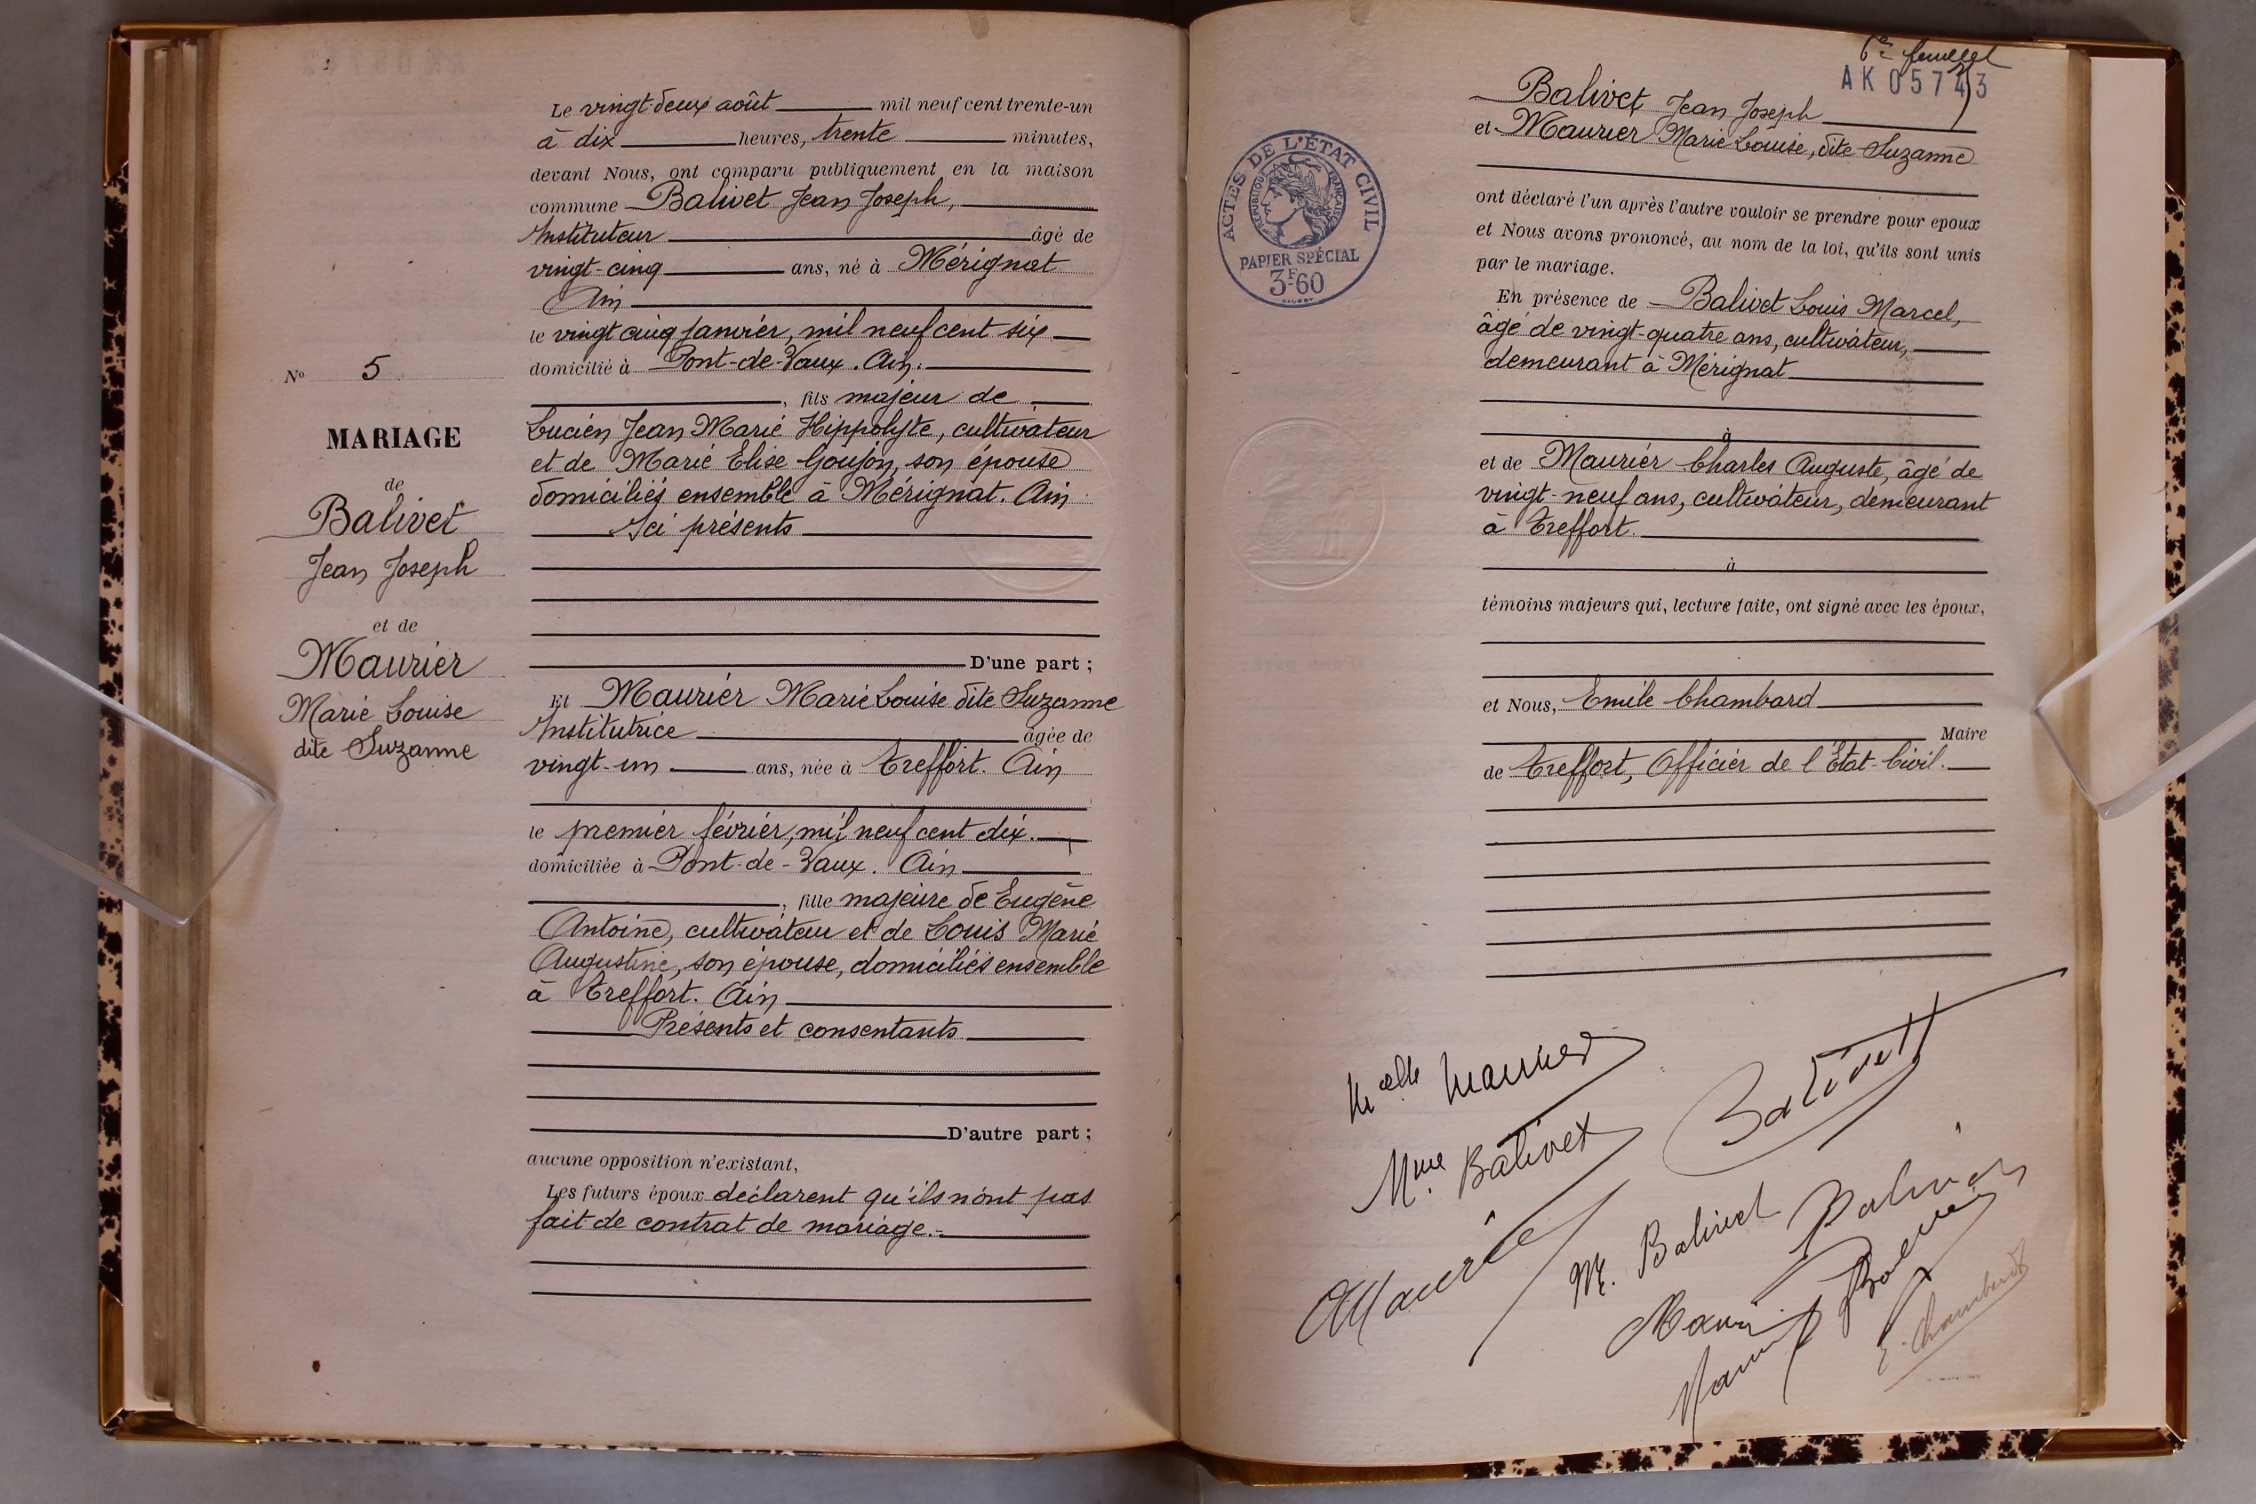 Le vingt-deux août mil neuf cent trente-un
à dix heures, trente minutes,
devant Nous, ont comparu publiquement en la maison
commune Balivet Jean Joseph,
Instituteur âgé de
vingt-cinq ans, né à Mérignat
Ain
le vingt cinq janvier, mil neuf cent six
domicilié à Pont-de-Vaux. Ain.
, fils majeur de
Lucien Jean Marie Hippolyte, cultivateur
et de Marie Elise Goujon, son épouse
domiciliés ensemble à Mérignat. Ain
Ici présents
D'une part ;
Et Maurier Marie Louise dite Suzanne
Institutrice âgée de
vingt-un ans, née à Treffort. Ain
le premier février, mil neuf cent dix.
domiciliée à Pont-de-Vaux. Ain
, fille majeure de Eugène
Antoine, cultivateur et de Louis Marie
Augustine, son épouse, domiciliés ensemble
à Treffort. Ain
Présents et consentants
D'autre part ;
aucune opposition n'existant,
Les futurs époux déclarent qu'ils n'ont pas
fait de contrat de mariage.
No 5
MARIAGE
de
Balivet
Jean Joseph
et de
Maurier
Marie Louise
dite Suzanne
feuillet
AK 05743
Balivet Jean Joseph
et Maurier Marie Louise, dite Suzanne
ont déclaré l'un après l'autre vouloir se prendre pour epoux
et Nous avons prononcé, au nom de la loi, qu'ils sont unis
par le mariage.
En présence de Balivet Louis Marcel,
âgé de vingt-quatre ans, cultivateur,
demeurant à Mérignat
à
et de Maurier Charles Auguste, âgé de
vingt-neuf ans, cultivateur, demeurant
à Treffort.
à
témoins majeurs qui, lecture faite, ont signé avec les époux,
et Nous, Emile Chambard
Maire
de Treffort, Officier de l'Etat-Civil.
ACTES DE L'ÉTAT CIVIL
RÉPUBLIQUE FRANÇAISE
PAPIER SPÉCIAL
3F60
Melle Maurier
Balivet
Mme Balivet
Maurier
M. Balivet
E. Chambard